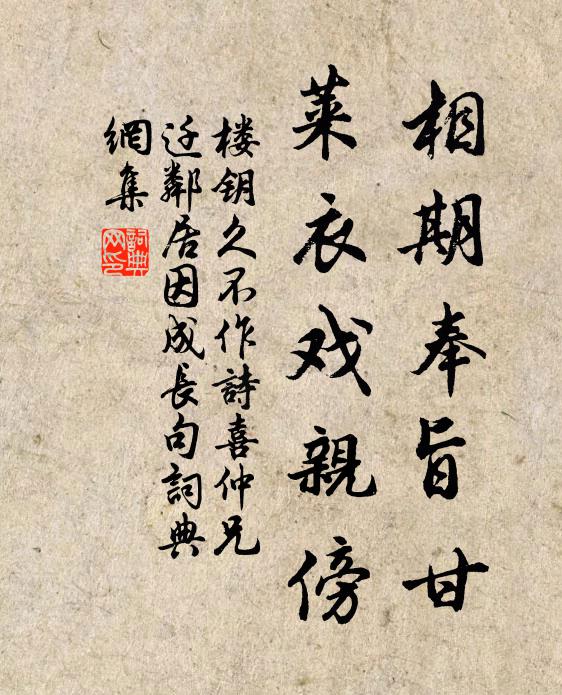 相期奉旨甘
莱衣戏親傍
楼钥久不作詩喜仲兄
迁鄰居因成長句詞典
網集
詞典网印